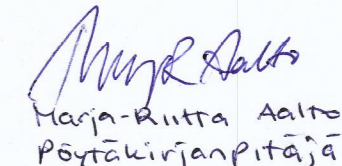 Marja-Riitta Aalto
Pöytäkirjanpitäjä